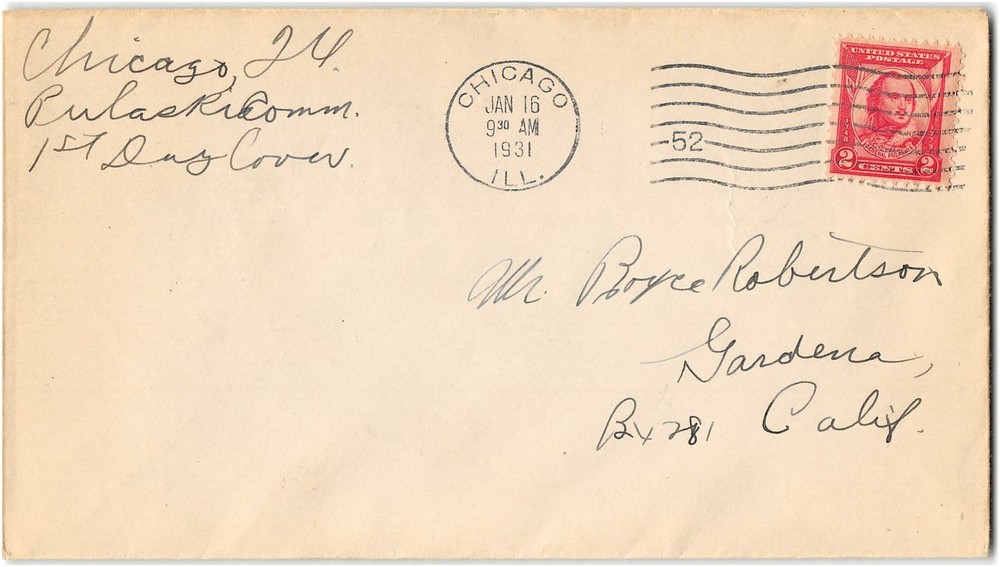 Chicago, Ill.
Pulaski Comm.
1st Day Cover.
CHICAGO
JAN 16
9 30 AM
1931
ILL.
52
UNITED STATES
POSTAGE
GENERAL PULASKI
2 CENTS 2
Mr. Boyce Robertson
Gardena,
Bx 281 Calif.